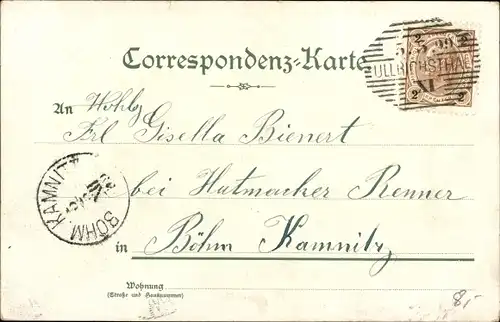 Correspondenz-Karte
2 2
5.5.99
ULLRICHSTHAL
2 2
An Wohlg.
Frl Gisella Bienert
bei Hutmacher Renner
in Böhm Kamnitz
BÖHM. KAMNITZ
Wohnung
(Straße und Hausnummer)
8,-